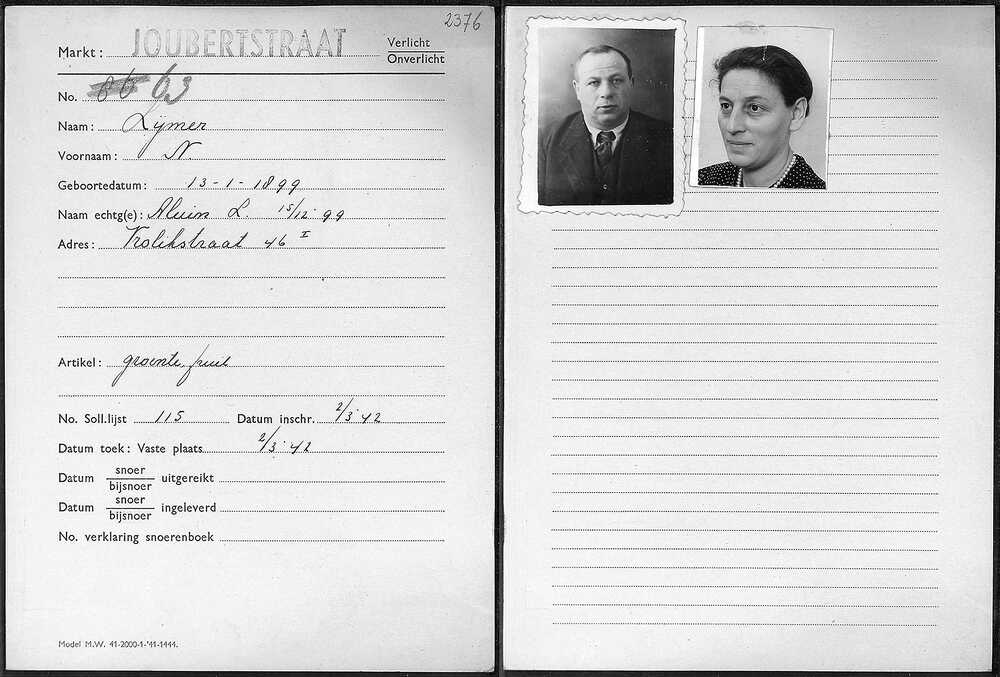 2376
Markt: JOUBERTSTRAAT Verlicht
Onverlicht
No. 66 63
Naam: Lijmer
Voornaam: N.
Geboortedatum: 13-1-1899
Naam echtg(e): Aluin L. 15/12 99
Adres: Krolikstraat 46 I
Artikel: groente, fruit
No. Soll.lijst 115 Datum inschr. 2/3 '42
Datum toek: Vaste plaats 2/3 '42
Datum snoer
bijsnoer uitgereikt
Datum snoer
bijsnoer ingeleverd
No. verklaring snoerenboek
Model M.W. 41-2000-1-'41-1444.